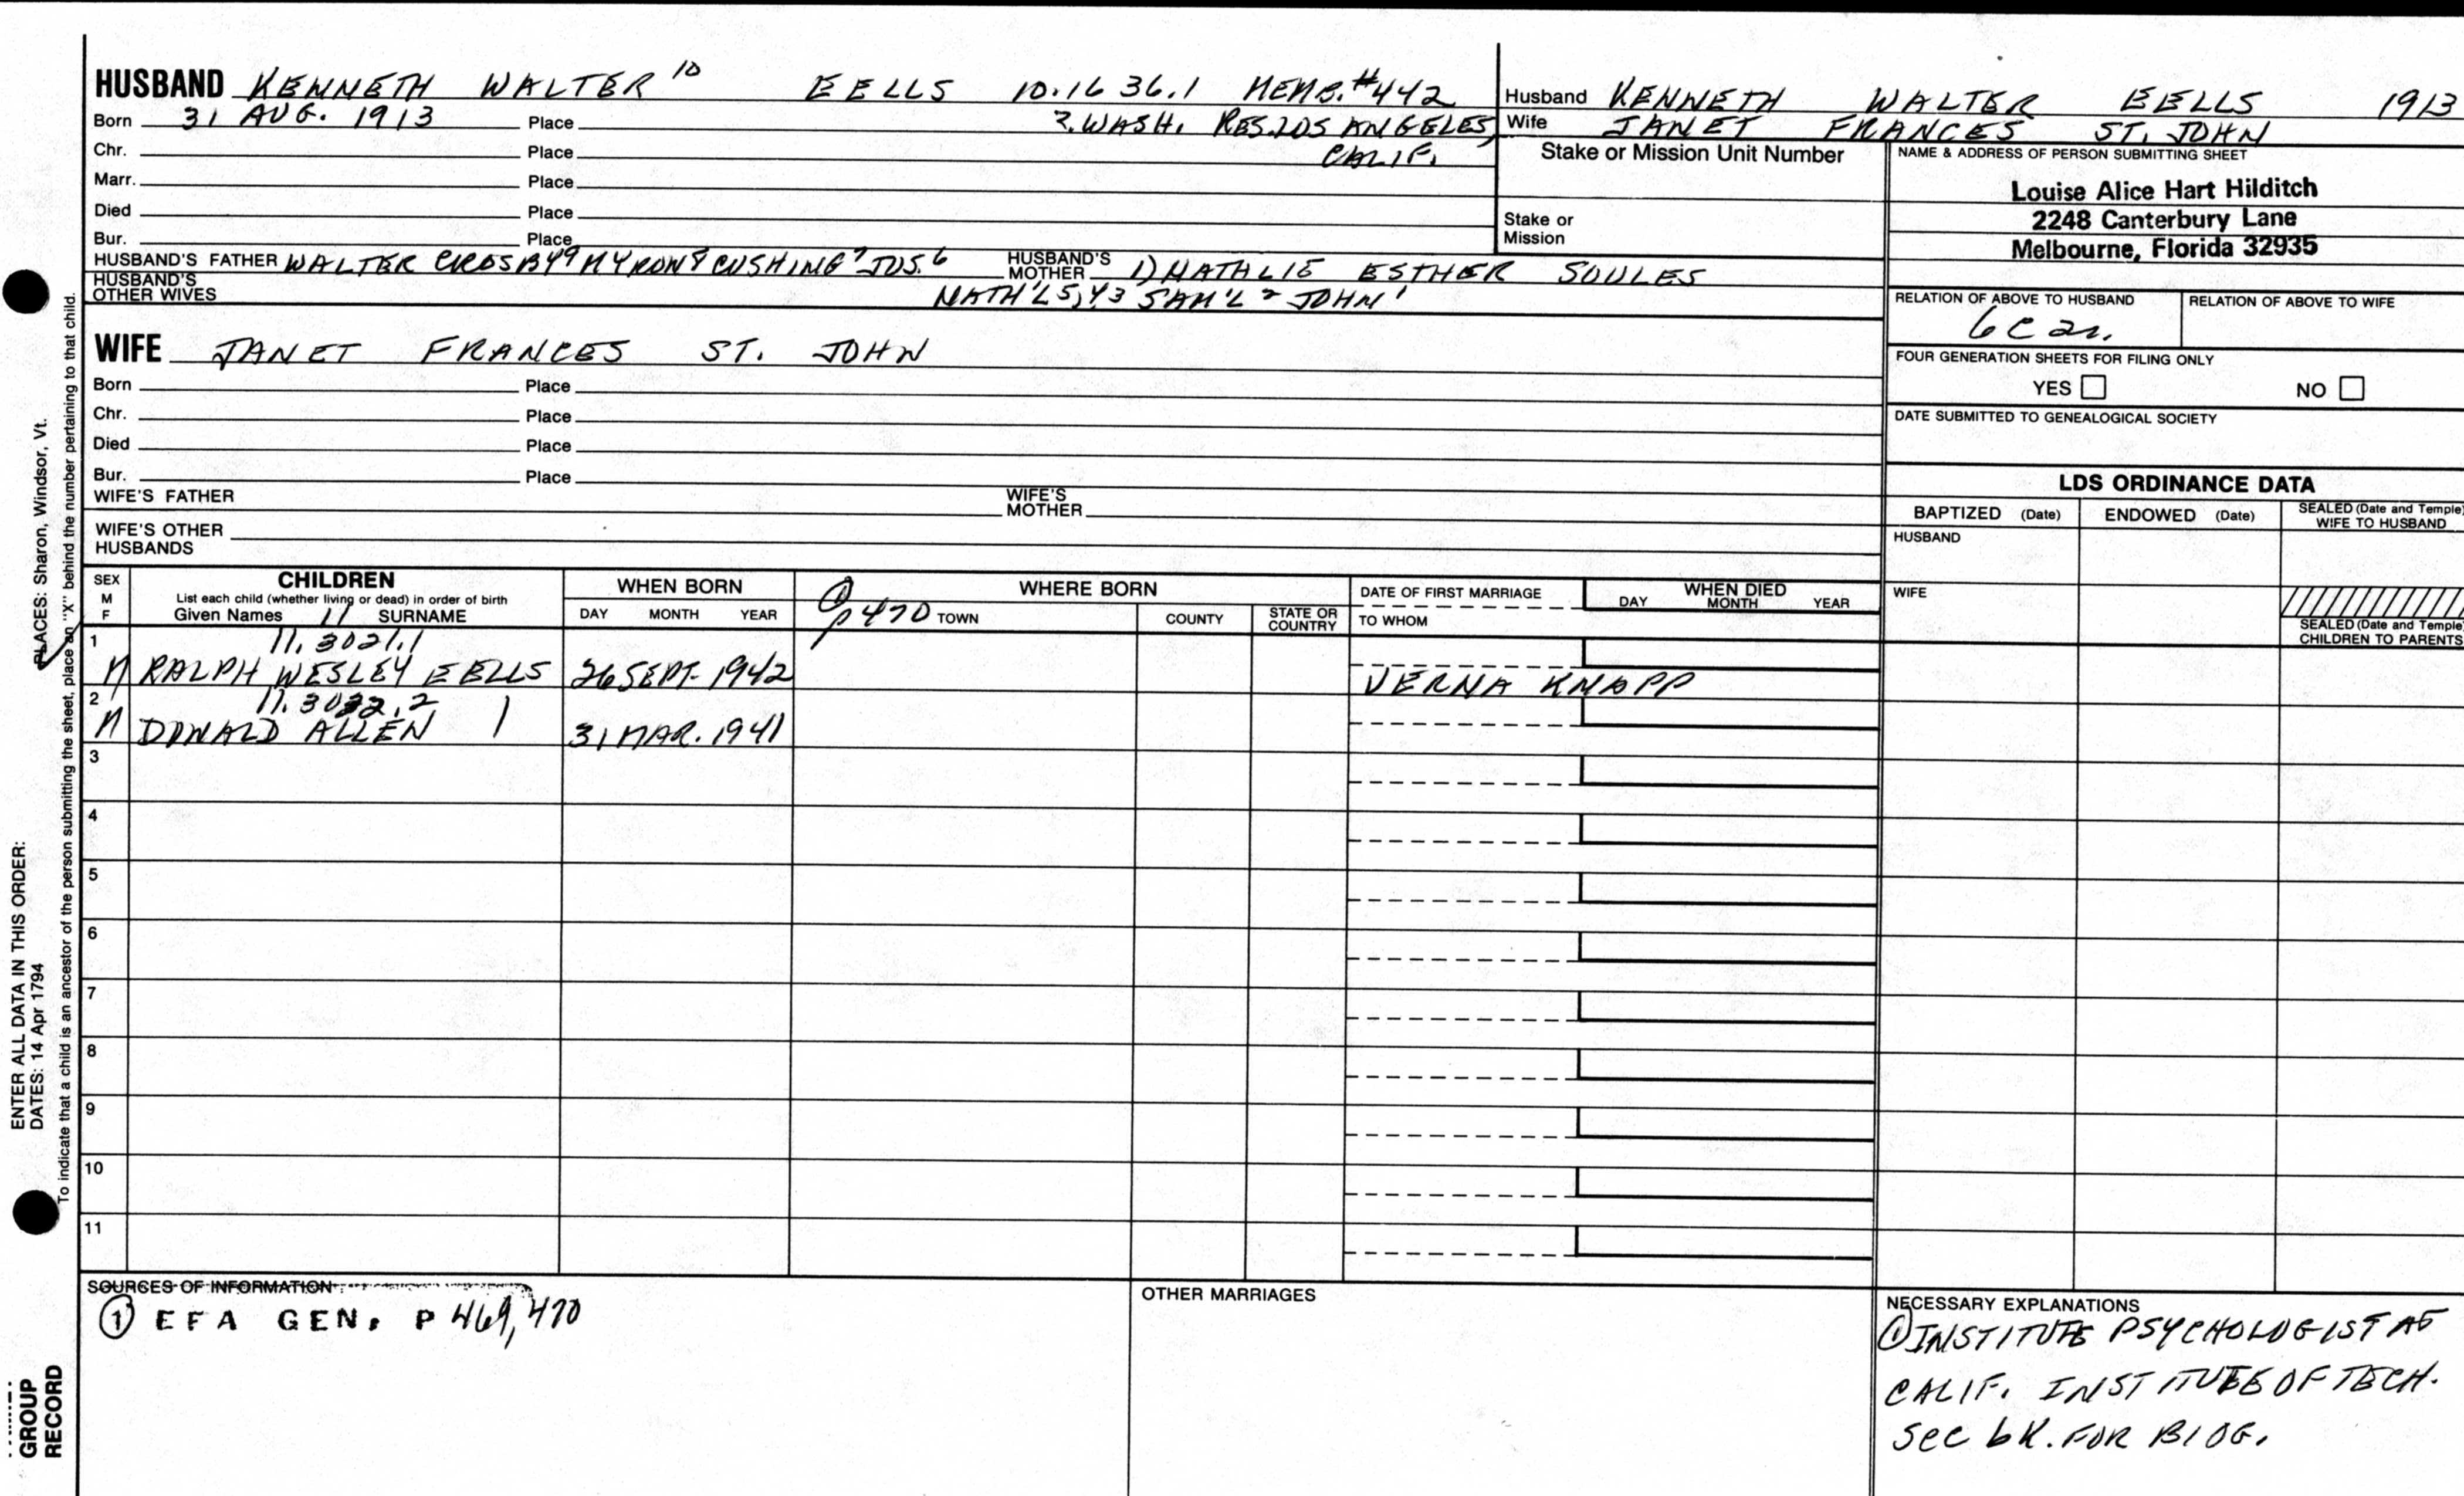 HUSBAND KENNETH WALTER 10 EELLS 10.1636.1 MEMB.#442
Born 31 AUG. 1913 Place ?.WASH. RES.LOS ANGELES,
Chr. Place CALIF.
Marr. Place
Died Place
Bur. Place
HUSBAND'S FATHER WALTER CROSBY9 MYRON8 CUSHING7 JOS.6 HUSBAND'S MOTHER 1) NATHALIE ESTHER SOULES
HUSBAND'S OTHER WIVES NATH'L 5,4,3 SAM'L 2 JOHN 1
Husband KENNETH WALTER EELLS 1913
Wife JANET FRANCES ST. JOHN
Stake or Mission Unit Number
Stake or
Mission
NAME & ADDRESS OF PERSON SUBMITTING SHEET
Louise Alice Hart Hilditch
2248 Canterbury Lane
Melbourne, Florida 32935
RELATION OF ABOVE TO HUSBAND RELATION OF ABOVE TO WIFE
6C2r.
FOUR GENERATION SHEETS FOR FILING ONLY
YES NO
DATE SUBMITTED TO GENEALOGICAL SOCIETY
WIFE JANET FRANCES ST. JOHN
Born Place
Chr. Place
Died Place
Bur. Place
WIFE'S FATHER WIFE'S MOTHER
WIFE'S OTHER HUSBANDS
LDS ORDINANCE DATA
BAPTIZED (Date) ENDOWED (Date) SEALED (Date and Temple) WIFE TO HUSBAND
HUSBAND
WIFE
SEALED (Date and Temple) CHILDREN TO PARENTS
SEX M F
CHILDREN
List each child (whether living or dead) in order of birth
Given Names 11 SURNAME
WHEN BORN
DAY MONTH YEAR
WHERE BORN
① p470 TOWN COUNTY STATE OR COUNTRY
DATE OF FIRST MARRIAGE
TO WHOM
WHEN DIED
DAY MONTH YEAR
1 11.3021.1
M RALPH WESLEY EELLS 26 SEPT. 1942 VERNA KNAPP
2 11.3022.2
M DONALD ALLEN 31 MAR. 1941
3
4
5
6
7
8
9
10
11
SOURCES OF INFORMATION
① EFA GEN. P 469,470
OTHER MARRIAGES
NECESSARY EXPLANATIONS
① INSTITUTE PSYCHOLOGIST AT
CALIF. INSTITUTE OF TECH.
See bk. FOR BIOG.
ENTER ALL DATA IN THIS ORDER:
DATES: 14 Apr 1794 PLACES: Sharon, Windsor, Vt.
To indicate that a child is an ancestor of the person submitting the sheet, place an "X" behind the number pertaining to that child.
GROUP
RECORD